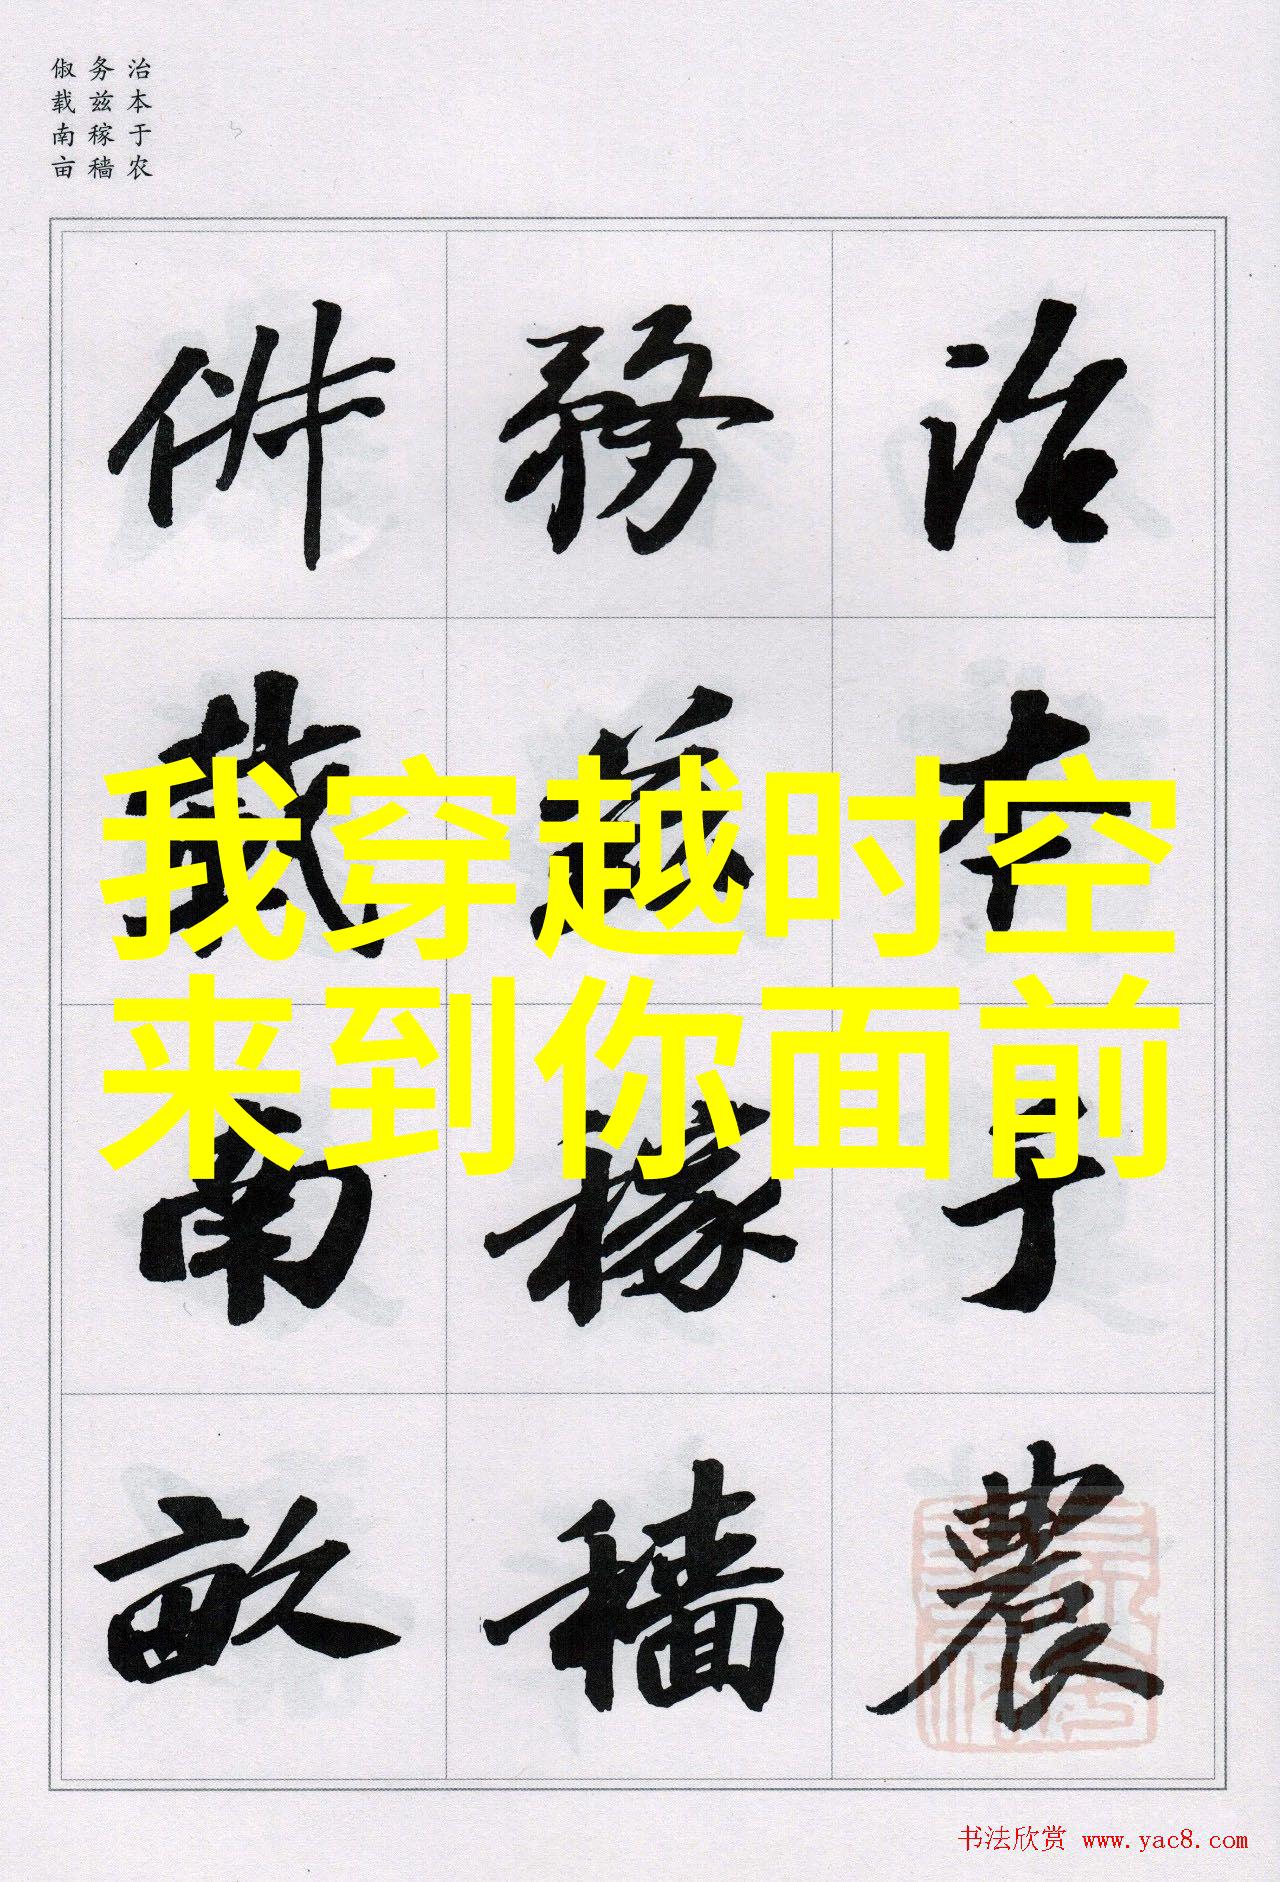 治本于农
务兹稼穑
俶载南亩
治本于農
務兹稼穡
俶載南畝
我穿越时空
来到你面前
书法欣赏 www.yac8.com